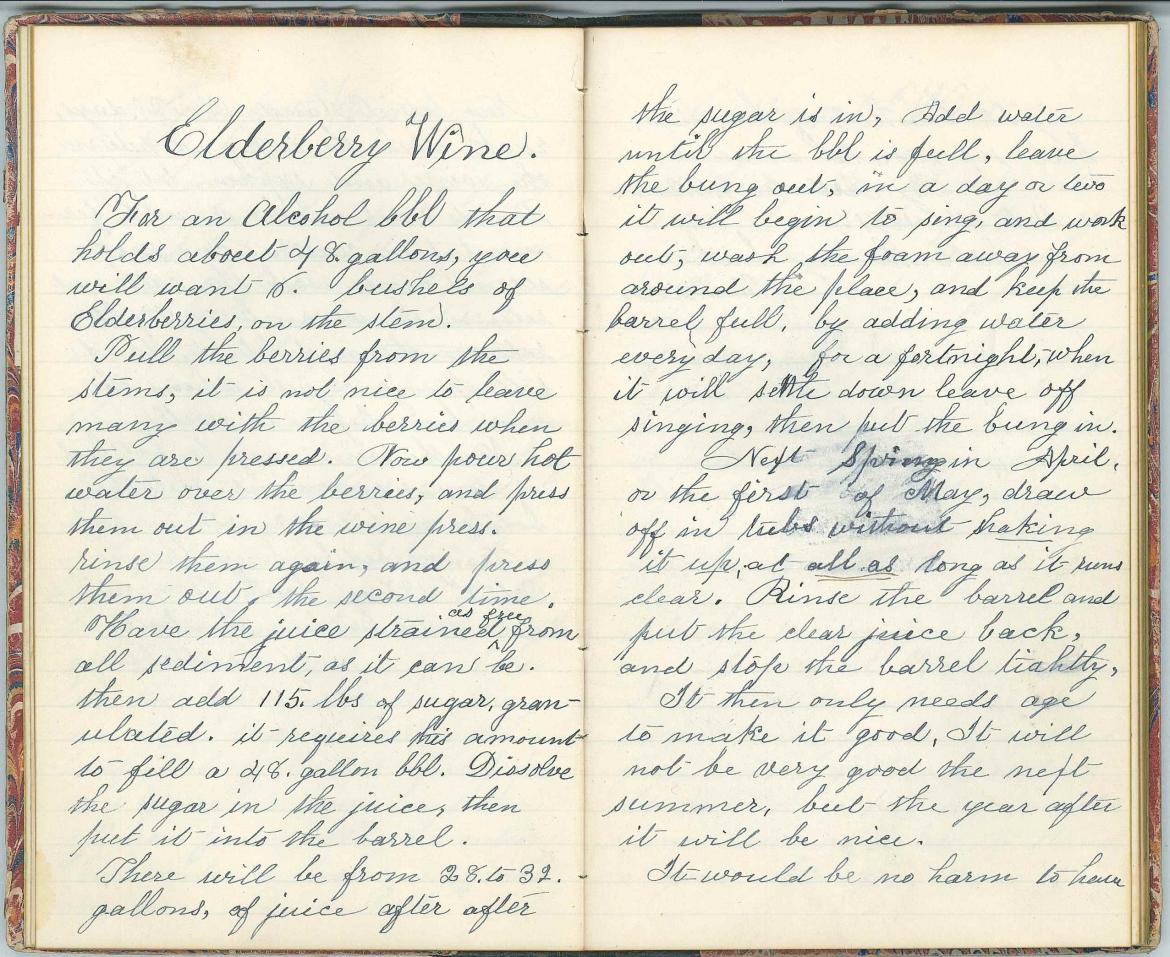 Elderberry Wine.
For an Alcohol bbl that
holds about 48. gallons, you
will want 8. bushels of
Elderberries, on the stem.
Pull the berries from the
stems, it is not nice to leave
many with the berries when
they are pressed. Now pour hot
water over the berries, and press
them out in the wine press.
rinse them again, and press
them out, the second time.
Have the juice strained as free from
all sediment, as it can be.
then add 115. lbs of sugar, gran-
ulated. it requires this amount
to fill a 48. gallon bbl. Dissolve
the sugar in the juice, then
put it into the barrel.
There will be from 28. to 32.
gallons, of juice after after
the sugar is in, Add water
until the bbl is full, leave
the bung out, in a day or two
it will begin to sing, and work
out, wash the foam away from
around the place, and keep the
barrel full, by adding water
every day, for a fortnight, when
it will settle down leave off
singing, then put the bung in.
Next Spring in April,
or the first of May, draw
off in tubs without shaking
it up, at all as long as it runs
clear. Rinse the barrel and
put the clear juice back,
and stop the barrel tightly,
It then only needs age
to make it good, It will
not be very good the next
summer, but the year after
it will be nice.
It would be no harm to have